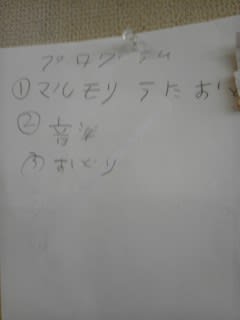 プログラム
①マルモリ うた おど
②音楽
③おどり